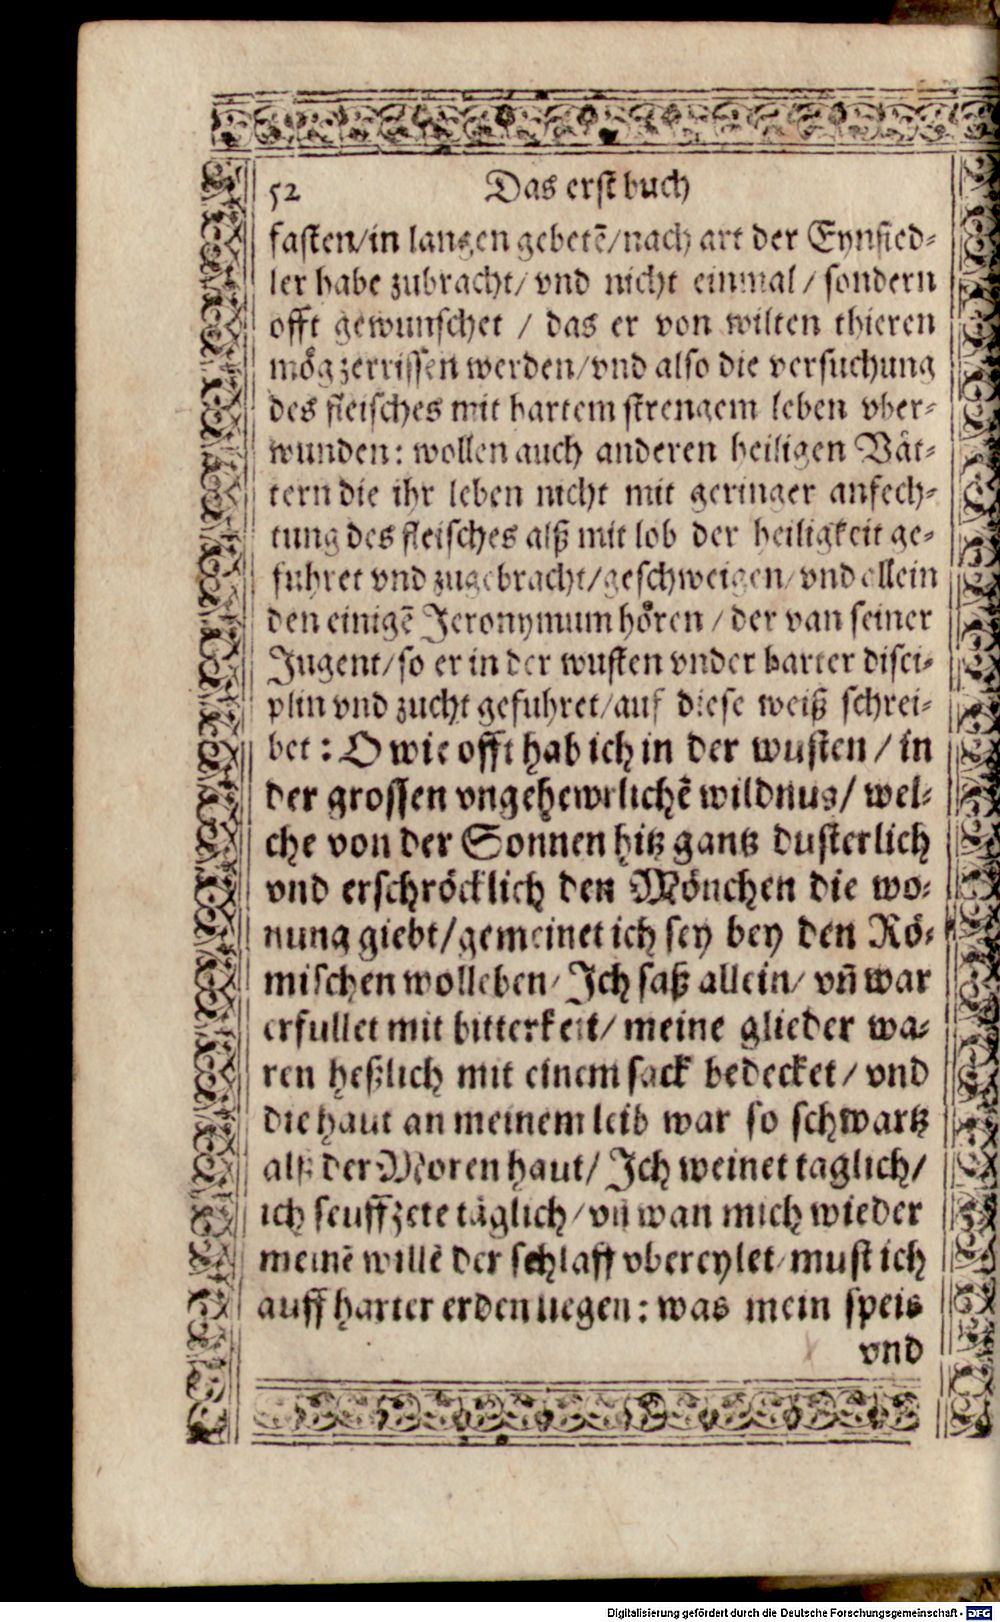 52 Das erst buch
fasten/in langen gebetẽ/nach art der Eynsied-
ler habe zubracht/ vnd nicht einmal / sondern
offt gewunschet / das er von wilten thieren
mög zerrissen werden/vnd also die versuchung
des fleisches mit hartem strengem leben vber-
wunden: wollen auch anderen heiligen Vät-
tern die ihr leben nicht mit geringer anfech-
tung des fleisches alß mit lob der heiligkeit ge-
fuhret vnd zugebracht/geschweigen/vnd allein
den einigẽ Jeronymum hören / der van seiner
Jugent/so er in der wusten vnder harter disci-
plin vnd zucht gefuhret/auf diese weiß schrei-
bet : O wie offt hab ich in der wusten / in
der grossen vngehewrlichẽ wildnus/ wel-
che von der Sonnen hitz gantz dusterlich
vnd erschröcklich den Mönchen die wo-
nung giebt/gemeinet ich sey bey den Rö-
mischen wolleben/ Jch saß allein/ vñ war
erfullet mit bitterkeit/ meine glieder wa-
ren heßlich mit einem sack bedecket / vnd
die haut an meinem leib war so schwartz
alß der Moren haut/ Jch weinet taglich/
ich seuffzete täglich/vñ wan mich wieder
meinẽ willẽ der schlaff vbereylet/must ich
auff harter erden liegen: was mein speis
vnd
Digitalisierung gefördert durch die Deutsche Forschungsgemeinschaft - DFG